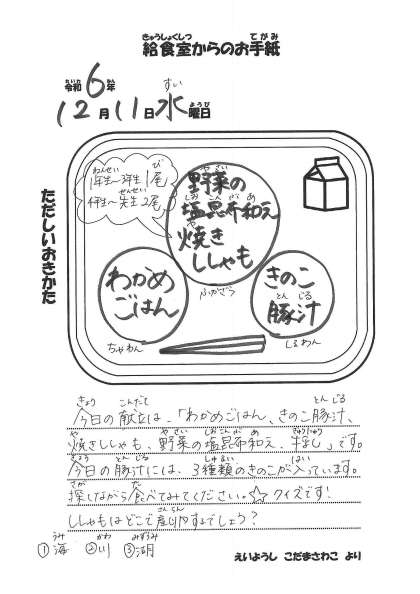 給食室からのお手紙
きゅうしょくしつ てがみ
令和6年
れいわ ねん
12月11日水曜日
すい ようび
ただしいおきかた
1年生～3年生1尾
ねんせい び
4年生～先生2尾
せんせい
野菜の
やさい
塩昆布和え
しおこんぶあ
焼き
や
ししゃも
ふかざら
わかめ
ごはん
ちゃわん
きのこ
豚汁
とん じる
しるわん
きょう こんだて とん じる
今日の献立は、「わかめごはん、きのこ豚汁、
や やさい しおこんぶ あ ぎゅうにゅう
焼きししゃも、野菜の塩昆布和え、牛乳」です。
きょう とん じる しゅるい はい
今日の豚汁には、3種類のきのこが入っています。
さが た
探しながら食べてみてください。☆クイズです!
さんらん
ししゃもはどこで産卵するでしょう?
うみ かわ みずうみ
①海 ②川 ③湖
えいようし こだまさわこ より